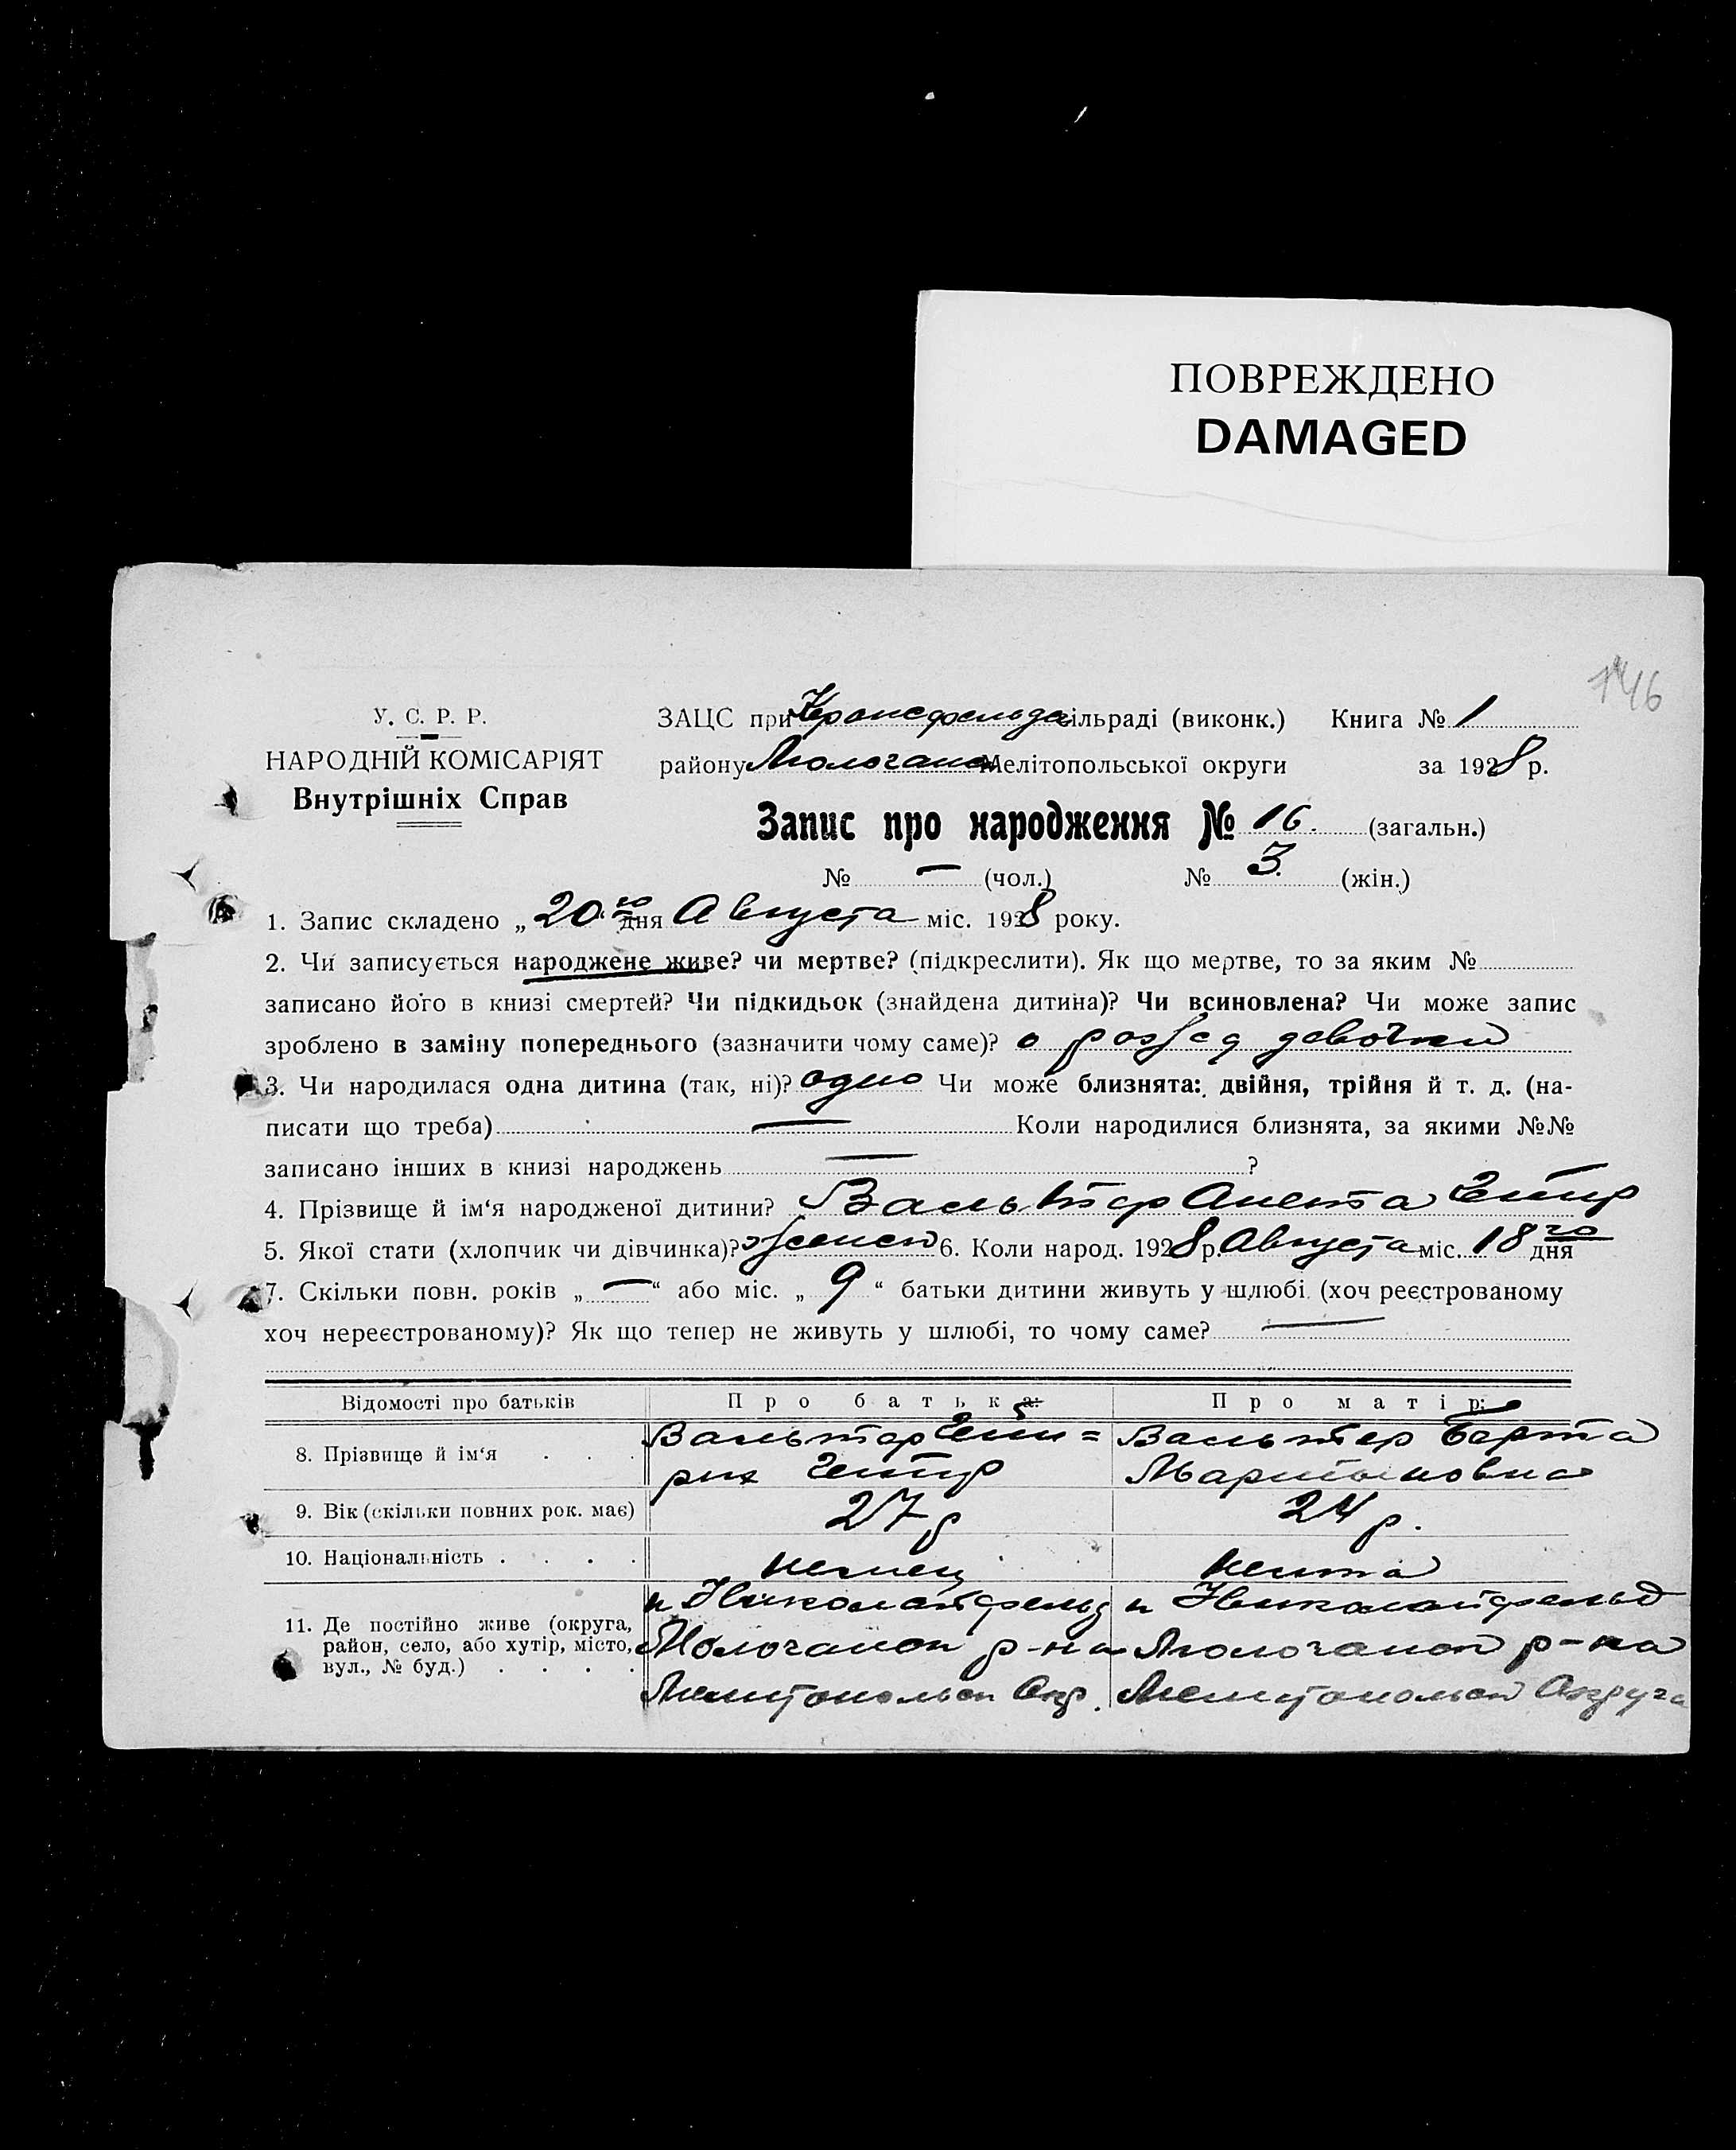 ПОВРЕЖДЕНО
DAMAGED
У. С. Р. Р.
НАРОДНІЙ КОМІСАРІЯТ
Внутрішніх Справ
ЗАЦС при сільраді (виконк.) Книга № 1
району Молочан Мелітопольської округи за 1928 р.
Запис про народження № 16. (загальн.)
№ — (чол.) № 3. (жін.)
1. Запис складено „20го“ дня Августа міс. 1928 року.
2. Чи записується народжене живе? чи мертве? (підкреслити). Як що мертве, то за яким №
записано його в книзі смертей? Чи підкидьок (знайдена дитина)? Чи всиновлена? Чи може запис
зроблено в заміну попереднього (зазначити чому саме)? о девочки
3. Чи народилася одна дитина (так, ні)? одно Чи може близнята: двійня, трійня й т. д. (на-
писати що треба) — Коли народилися близнята, за якими №№
записано інших в книзі народжень — ?
4. Прізвище й ім‘я народженої дитини? Вальтер
5. Якої стати (хлопчик чи дівчинка)? женск 6. Коли народ. 1928 р. Августа міс. 18го дня
7. Скільки повн. років „—“ або міс. „9“ батьки дитини живуть у шлюбі (хоч реєстрованому
хоч нереєстрованому)? Як що тепер не живуть у шлюбі, то чому саме? —
Відомості про батьків Про батька: Про матір:
8. Прізвище й ім‘я Вальтер Гейн= Вальтер Берта
рих Мартыновна
9. Вік (скільки повних рок. має) 27 р 24 р.
10. Національність немец немка
11. Де постійно живе (округа, район, село, або хутір, місто, вул., № буд.) к Николайфельд к Николайфельд
Молочанск р-на Молочанск р-на
Мелитопольск Окр. Мелитопольск Округа